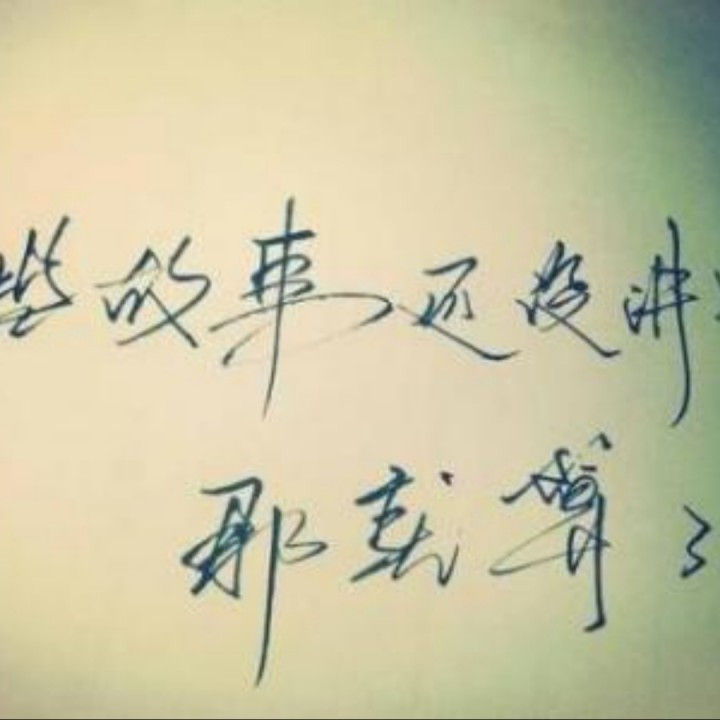 些故事还没讲
那就算了